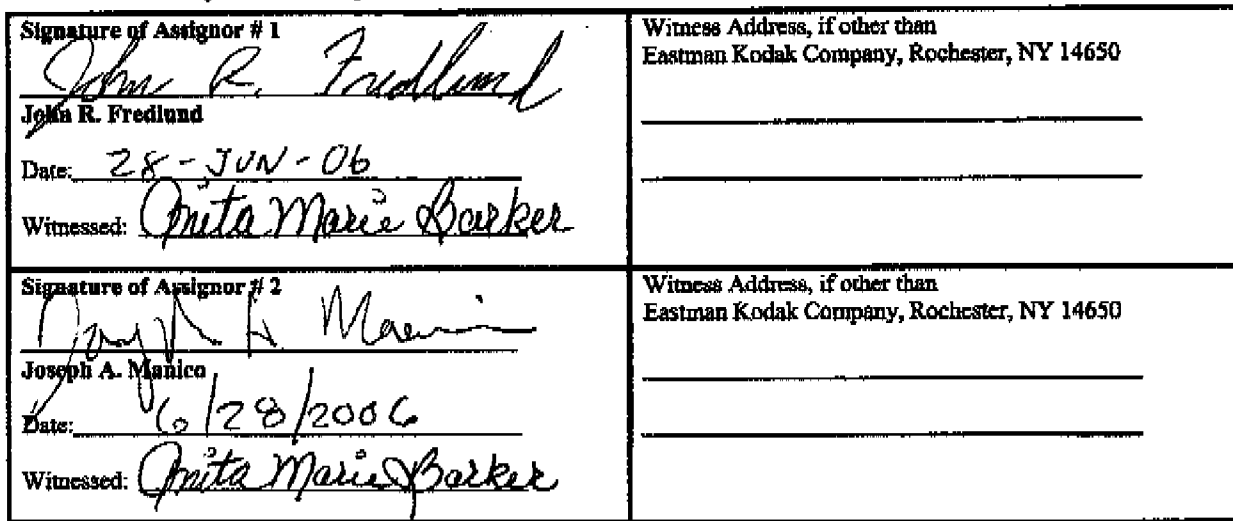 Signature of Assignor # 1
John R. Fredlund
John R. Fredlund
Date: 28-JUN-06
Witnessed: Anita Marie Barker
Witness Address, if other than
Eastman Kodak Company, Rochester, NY 14650
Signature of Assignor # 2
Joseph A. Manico
Joseph A. Manico
Date: 6/28/2006
Witnessed: Anita Marie Barker
Witness Address, if other than
Eastman Kodak Company, Rochester, NY 14650